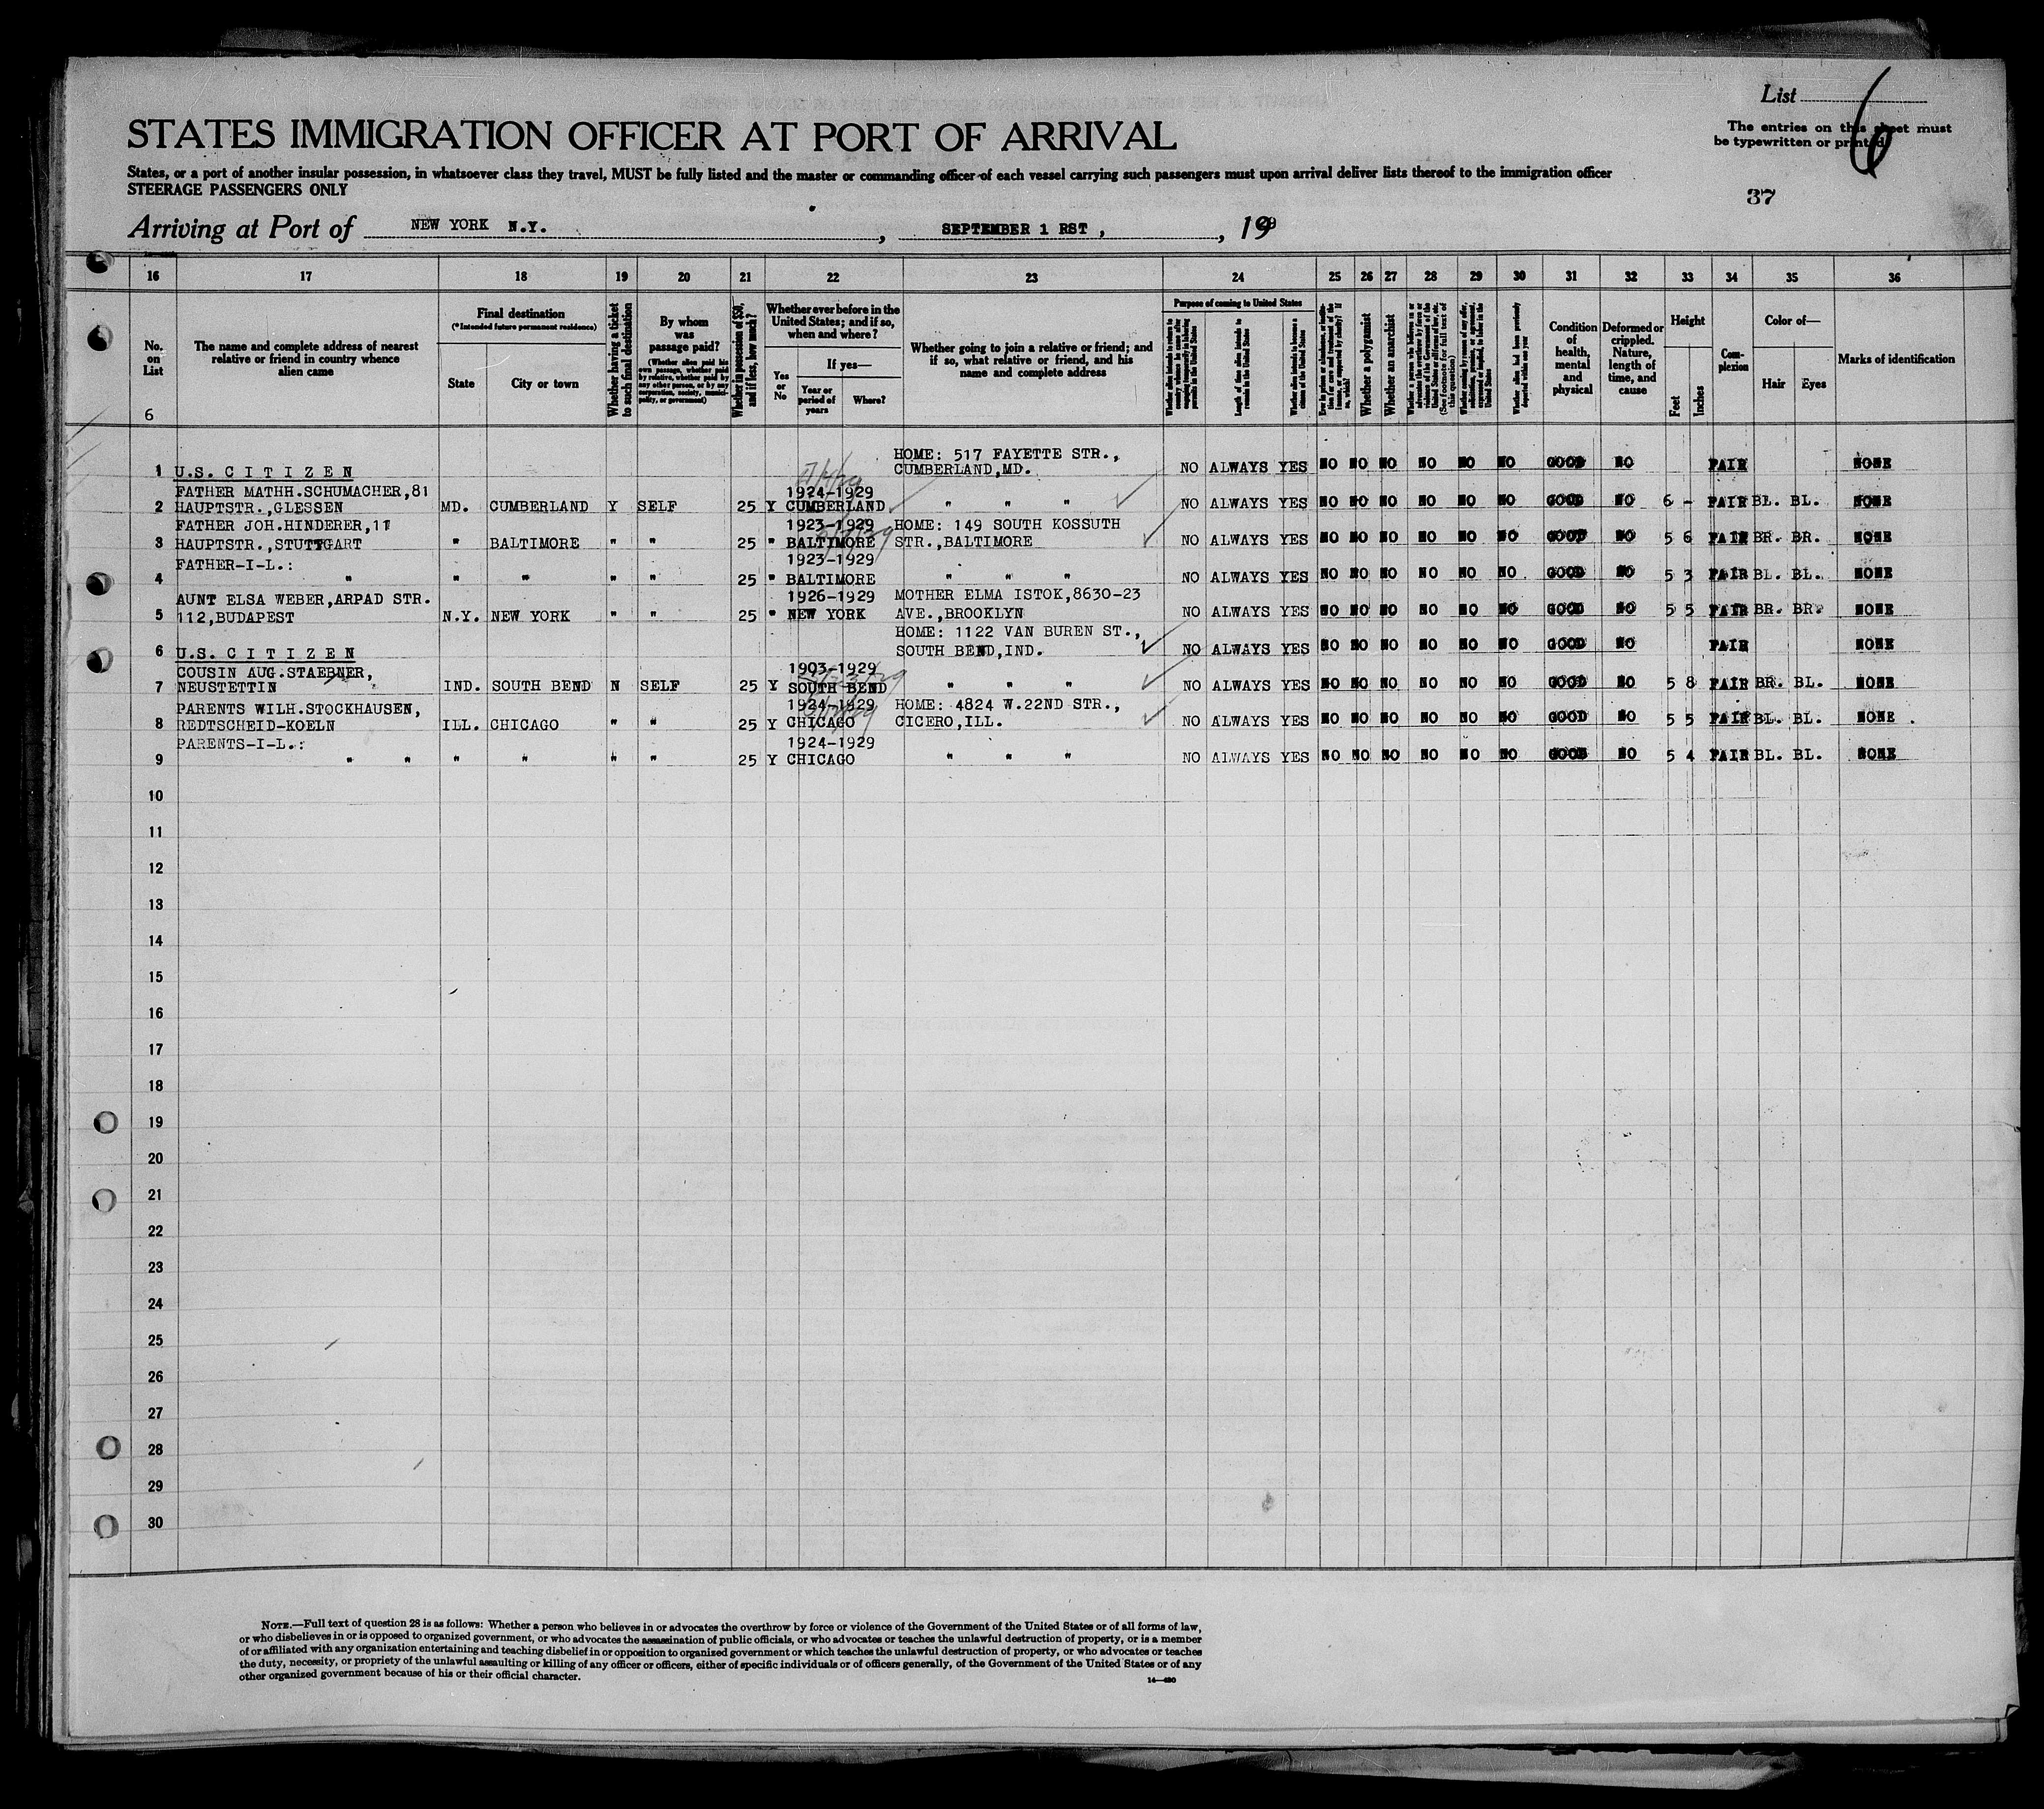 List 6
The entries on this sheet must
be typewritten or printed
37
STATES IMMIGRATION OFFICER AT PORT OF ARRIVAL
States, or a port of another insular possession, in whatsoever class they travel, MUST be fully listed and the master or commanding officer of each vessel carrying such passengers must upon arrival deliver lists thereof to the immigration officer
STEERAGE PASSENGERS ONLY
Arriving at Port of NEW YORK N.Y. , SEPTEMBER 1 RST , , 19
16 17 18 19 20 21 22 23 24 25 26 27 28 29 30 31 32 33 34 35 36
No. on List
6
The name and complete address of nearest relative or friend in country whence alien came
Final destination
(*Intended future permanent residence)
State
City or town
Whether having a ticket to such final destination
By whom was passage paid?
(Whether alien paid his own passage, whether paid by relative, whether paid by any other person, or by any corporation, society, municipality, or government)
Whether in possession of $50, and if less, how much?
Whether ever before in the United States; and if so, when and where?
Yes or No
If yes—
Year or period of years
Where?
Whether going to join a relative or friend; and if so, what relative or friend, and his name and complete address
Purpose of coming to United States
Length of time alien intends to remain in the United States
Whether alien intends to become a citizen of the United States
Whether a polygamist
Whether an anarchist
(See footnote for full text of this question)
Condition of health, mental and physical
Deformed or crippled. Nature, length of time, and cause
Height
Feet
Inches
Complexion
Color of—
Hair
Eyes
Marks of identification
HOME: 517 FAYETTE STR.,
1 U.S. C I T I Z E N CUMBERLAND,MD. NO ALWAYS YES NO NO NO NO NO NO GOOD NO FAIR NONE
FATHER MATHH.SCHUMACHER,81 1924-1929
2 HAUPTSTR.,GLESSEN MD. CUMBERLAND Y SELF 25 Y CUMBERLAND " " " NO ALWAYS YES NO NO NO NO NO NO GOOD NO 6 - FAIR BL. BL. NONE
FATHER JOH.HINDERER,11 1923-1929 HOME: 149 SOUTH KOSSUTH
3 HAUPTSTR.,STUTTGART " BALTIMORE " " 25 " BALTIMORE STR.,BALTIMORE NO ALWAYS YES NO NO NO NO NO NO GOOD NO 5 6 FAIR BR. BR. NONE
FATHER-I-L.: 1923-1929
4 " " " " " 25 " BALTIMORE " " " NO ALWAYS YES NO NO NO NO NO NO GOOD NO 5 3 FAIR BL. BL. NONE
AUNT ELSA WEBER,ARPAD STR. 1926-1929 MOTHER ELMA ISTOK,8630-23
5 112,BUDAPEST N.Y. NEW YORK " " 25 " NEW YORK AVE.,BROOKLYN NO ALWAYS YES NO NO NO NO NO NO GOOD NO 5 5 FAIR BR. BR. NONE
HOME: 1122 VAN BUREN ST.,
6 U.S. C I T I Z E N SOUTH BEND,IND. NO ALWAYS YES NO NO NO NO NO NO GOOD NO FAIR NONE
COUSIN AUG.STAEBNER, 1903-1929
7 NEUSTETTIN IND. SOUTH BEND N SELF 25 Y SOUTH BEND " " " NO ALWAYS YES NO NO NO NO NO NO GOOD NO 5 8 FAIR BR. BL. NONE
PARENTS WILH.STOCKHAUSEN, 1924-1929 HOME: 4824 W.22ND STR.,
8 REDTSCHEID-KOELN ILL. CHICAGO " " 25 Y CHICAGO CICERO,ILL. NO ALWAYS YES NO NO NO NO NO NO GOOD NO 5 5 FAIR BL. BL. NONE
PARENTS-I-L.: 1924-1929
9 " " " " " " 25 Y CHICAGO " " " NO ALWAYS YES NO NO NO NO NO NO GOOD NO 5 4 FAIR BL. BL. NONE
10
11
12
13
14
15
16
17
18
19
20
21
22
23
24
25
26
27
28
29
30
NOTE.—Full text of question 28 is as follows: Whether a person who believes in or advocates the overthrow by force or violence of the Government of the United States or of all forms of law,
or who disbelieves in or is opposed to organized government, or who advocates the assassination of public officials, or who advocates or teaches the unlawful destruction of property, or is a member
of or affiliated with any organization entertaining and teaching disbelief in or opposition to organized government or which teaches the unlawful destruction of property, or who advocates or teaches
the duty, necessity, or propriety of the unlawful assaulting or killing of any officer or officers, either of specific individuals or of officers generally, of the Government of the United States or of any
other organized government because of his or their official character.
14—480